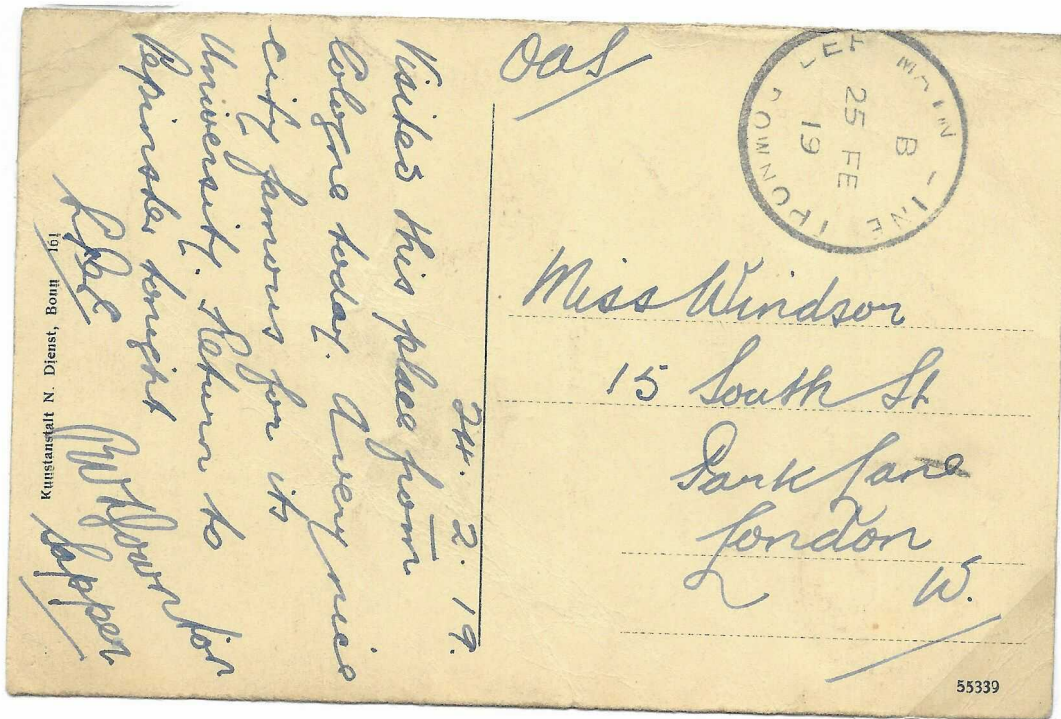 OAS
B
25 FE
19
Miss Windsor
15 South St
Park Lane
London
W.
55339
24. 2. 19.
Visited this place from
Cologne today. A very nice
city famous for its
University. Return to
Pepinster tonight
Sapper
Kunstanstalt N. Dienst, Bonn 161